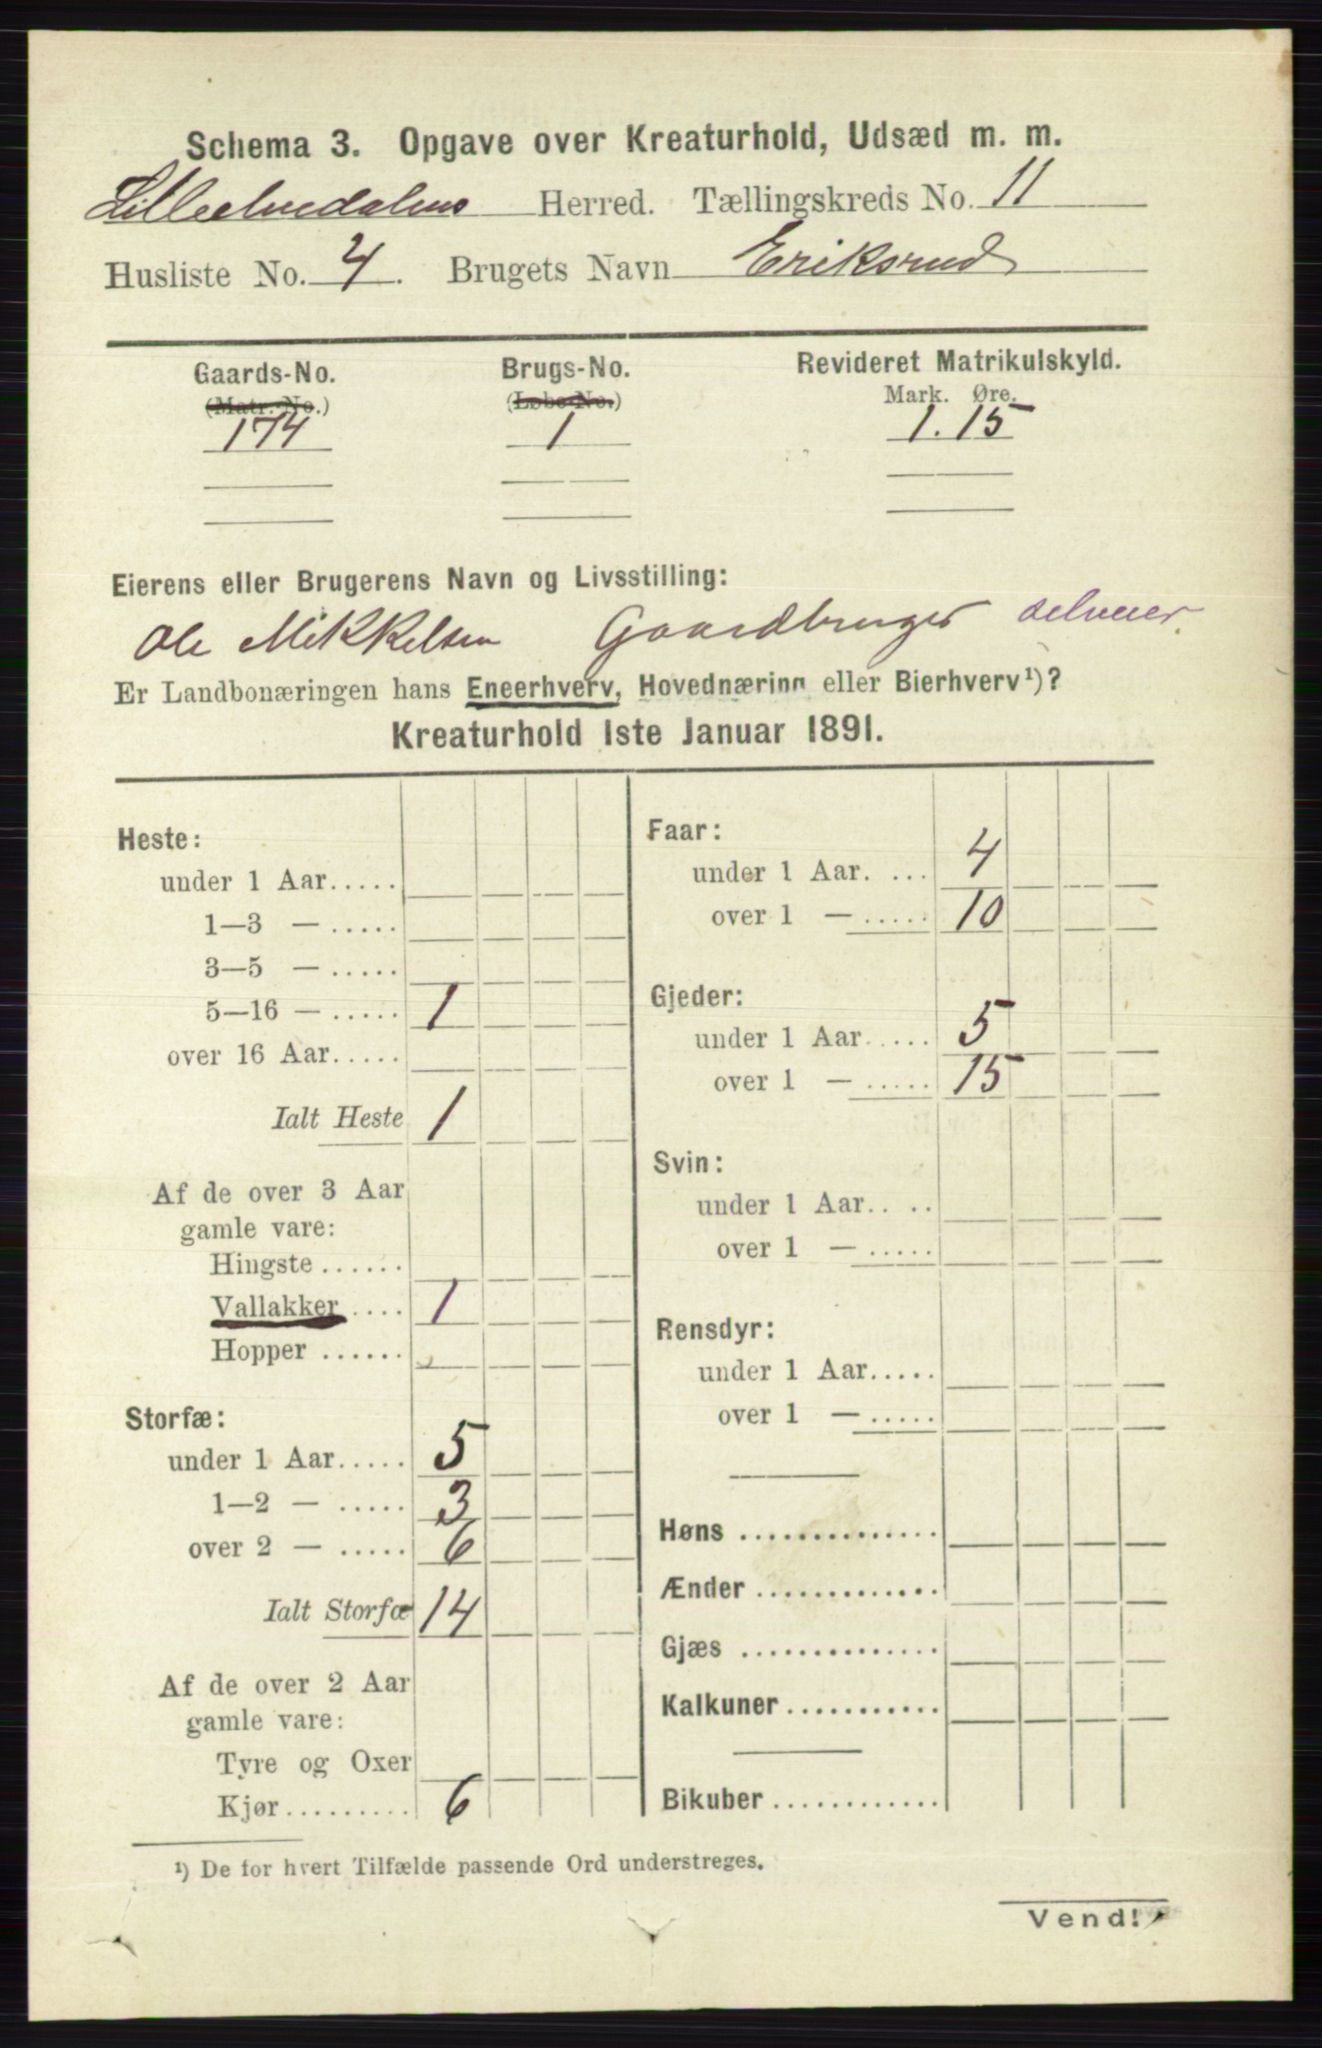 Schema 3. Opgave over Kreaturhold, Udsæd m. m.
Lilleelvedalens Herred. Tællingskreds No. 11
Husliste No. 4. Brugets Navn Eriksrud
Gaards-No. Brugs-No. Revideret Matrikulskyld.
(Matr.-No.) (Løbe-No.) Mark. Øre.
174 1 1.15
Eierens eller Brugerens Navn og Livsstilling:
Ole Mikkelsen Gaardbruger selveier.
Er Landbonæringen hans Eneerhverv, Hovednæring eller Bierhverv¹)?
Kreaturhold 1ste Januar 1891.
Heste:
under 1 Aar.....
1—3 — .....
3—5 — .....
5—16 — ..... 1
over 16 Aar.....
Ialt Heste 1
Af de over 3 Aar
gamle vare:
Hingste......
Vallakker.... 1
Hopper......
Storfæ:
under 1 Aar..... 5
1—2 — ..... 3
over 2 — ..... 6
Ialt Storfæ 14
Af de over 2 Aar
gamle vare:
Tyre og Oxer
Kjør......... 6
Faar:
under 1 Aar. ... 4
over 1 — ..... 10
Gjeder:
under 1 Aar..... 5
over 1 — ..... 15
Svin:
under 1 Aar.. ..
over 1 — .....
Rensdyr:
under 1 Aar.....
over 1 — .....
Høns ..............
Ænder .............
Gjæs ..............
Kalkuner ...........
Bikuber ............
¹) De for hvert Tilfælde passende Ord understreges.
Vend!